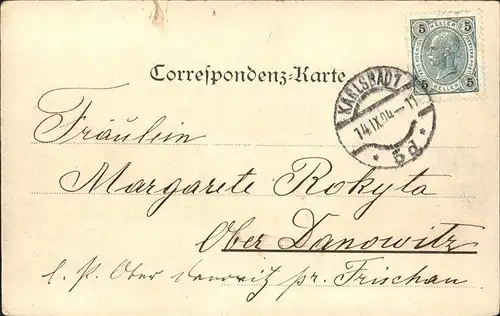 5 HELLER 5
Correspondenz-Karte
KARLSBAD 1
14.IX.04–11
* 5d *
Fräulein
Margarete Rokyta
Ober Danowitz
l. P. Ober Danowitz pr. Frischau